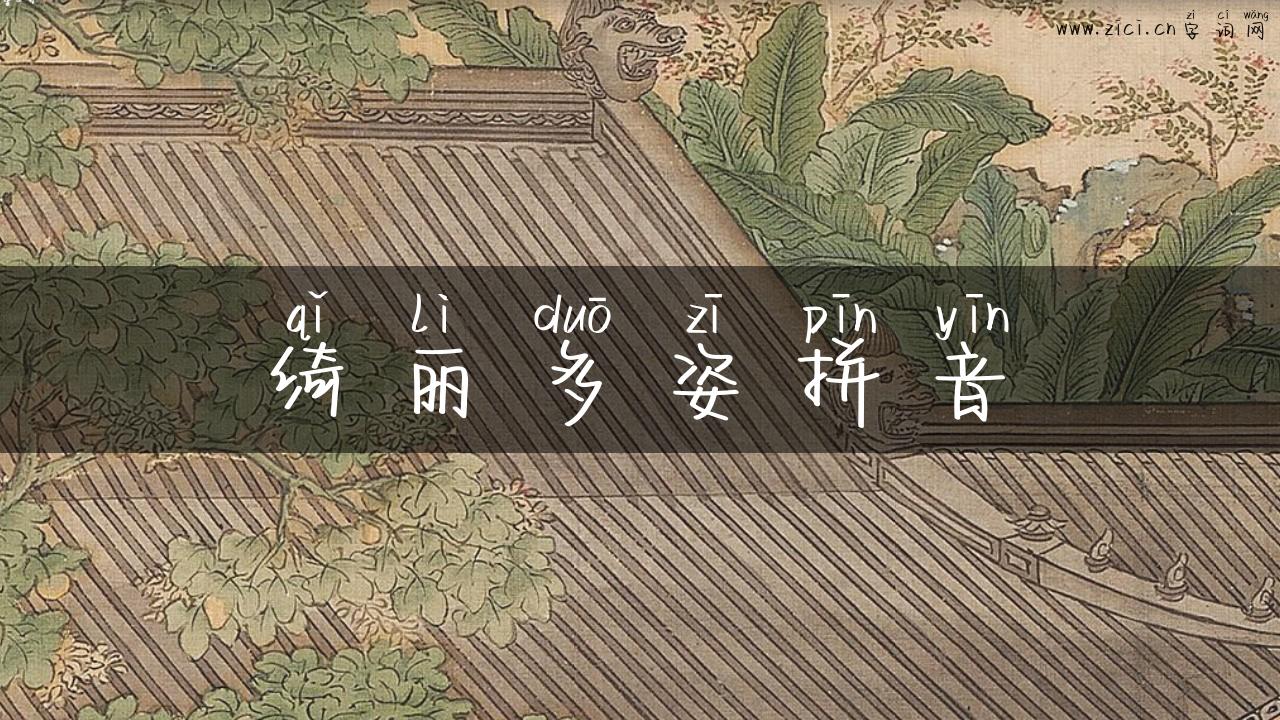 zì cí wǎng
www.zici.cn 字词网
qǐ lì duō zī pīn yīn
绮丽多姿拼音